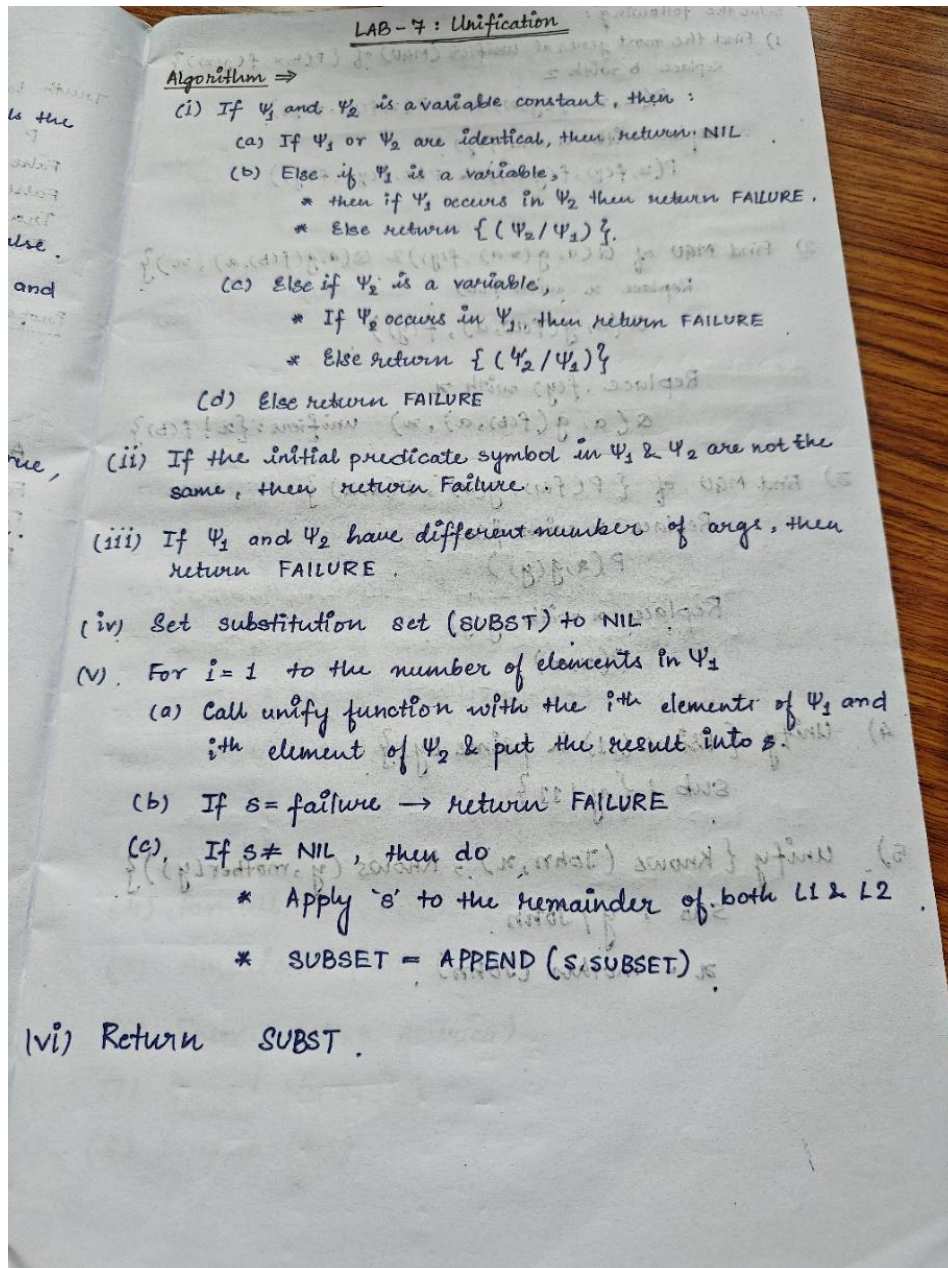 LAB - 7 : Unification
Algorithm ⇒
(i) If Ψ1 and Ψ2 is a variable constant, then :
(a) If Ψ1 or Ψ2 are identical, then return NIL
(b) Else if Ψ1 is a variable,
* then if Ψ1 occurs in Ψ2 then return FAILURE.
* Else return { (Ψ2/Ψ1) }.
(c) Else if Ψ2 is a variable,
* If Ψ2 occurs in Ψ1, then return FAILURE
* Else return { (Ψ2/Ψ1) }
(d) Else return FAILURE
(ii) If the initial predicate symbol in Ψ1 & Ψ2 are not the
same, then return Failure
(iii) If Ψ1 and Ψ2 have different number of args, then
return FAILURE.
(iv) Set substitution set (SUBST) to NIL
(v). For i = 1 to the number of elements in Ψ1
(a) Call unify function with the ith elements of Ψ1 and
ith element of Ψ2 & put the result into s.
(b) If s = failure → return FAILURE
(c). If s ≠ NIL, then do
* Apply 's' to the remainder of both L1 & L2.
* SUBSET = APPEND (S.SUBSET).
(vi) Return SUBST.
ls the
else.
and
rue,